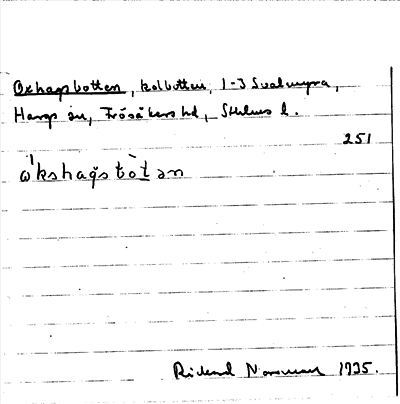 Oxhagsbotten, kolbotten, 1-3 Svalmyra,
Hargs sn, Frösåkers hd, Sthlms l.
251
ò̀kshag̊stò̀tən
Rickard Norrman 1935.